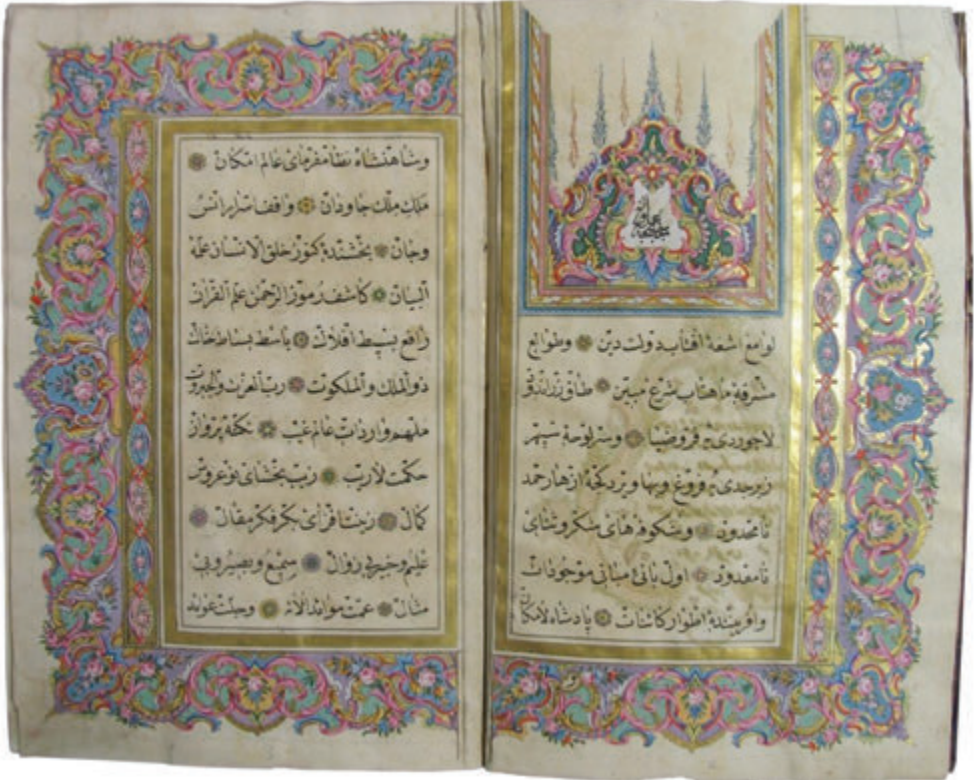 لوامع اشعۀ آفتاب دولت دین وطوالع
مشرقۀ ماهتاب شرع مبین طاق زراندود
لاجوردی فروضیا وسر
زبرجدی فروغ وبها ازهار حمد
نامحدود وشکوفهای شکر وثنای
نامعدود اول بانئ مبانی موجودات
وافرینندۀ اطوار کائنات پادشاه لامکان
وشاهنشاه نظامفرمای عالم امکان
ملك ملك جاودان واقف اسرار انس
وجان بخشندۀ کنوز خلق الانسان علمه
البیان کاشف رموز الرحمن علم القرآن
رافع بسیط افلاك باسط بساط خاك
ذو الملك والملکوت رب العزت والجبروت
ملهم واردات عالم غیب نکته پرواز
حکمت لاریب زیب بخشای نوعروس
کمال زینت افزای بکر فکر مقال
علیم وخبیر بی زوال سمیع وبصیر وبی
مثال عمت موائد الائه وجلت عوائد